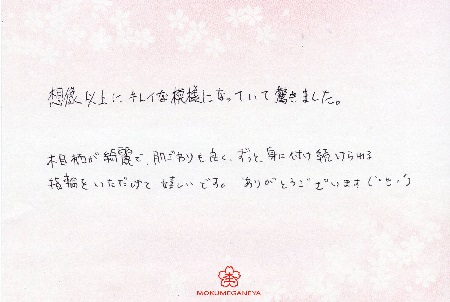 想像以上にキレイな模様になっていて驚きました。
木目柄が綺麗で、肌ざわりも良く、ずっと身に付け続けられる
指輪をいただけて嬉しいです。ありがとうございます(^o^)
MOKUMEGANEYA